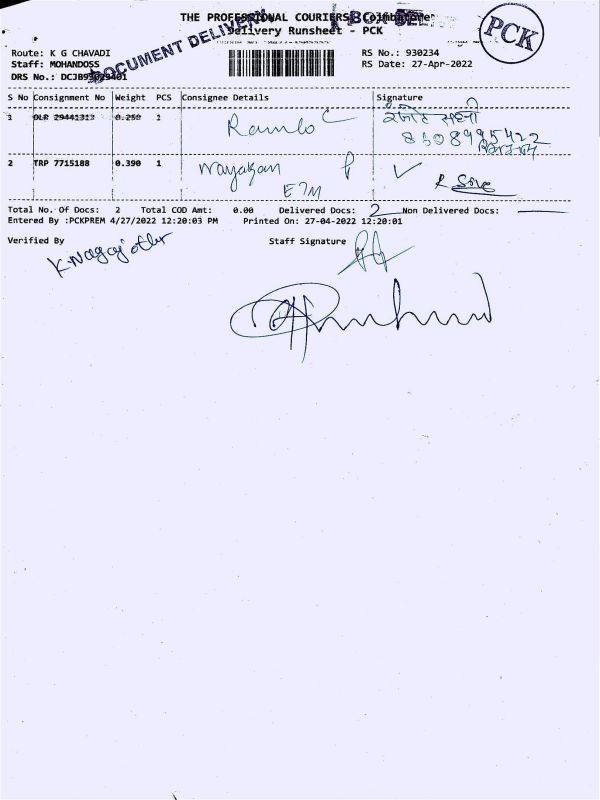 THE PROFESSIONAL COURIERS Coimbatore
Delivery Runsheet - PCK
DOCUMENT DELIVERY
PCK
Route: K G CHAVADI
RS No.: 930234
Staff: MOHANDOSS
RS Date: 27-Apr-2022
DRS No.:
S No Consignment No Weight PCS Consignee Details Signature
1 OLR 29441313 0.250 1 Rambo
2 TRP 7715188 0.390 1 Nayagan
Total No. Of Docs: 2 Total COD Amt: 0.00 Delivered Docs: 2 Non Delivered Docs:
Entered By :PCKPREM 4/27/2022 12:20:03 PM Printed On: 27-04-2022 12:20:01
Verified By Staff Signature